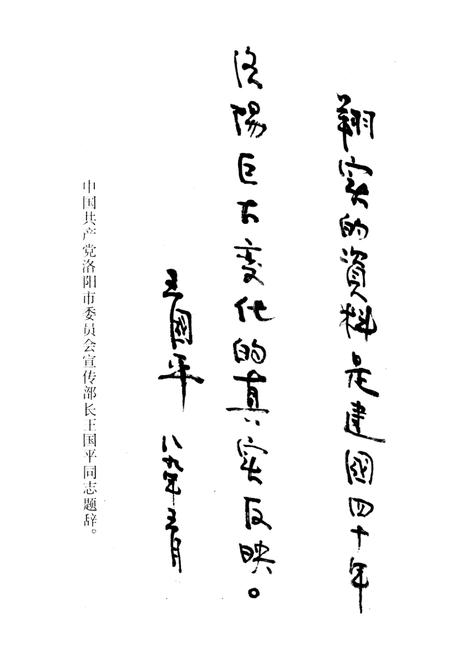 翔实的資料是建國四十年
洛陽巨大变化的真实反映。
王國平
八九年五月
中国共产党洛阳市委员会宣传部长王国平同志题辞。